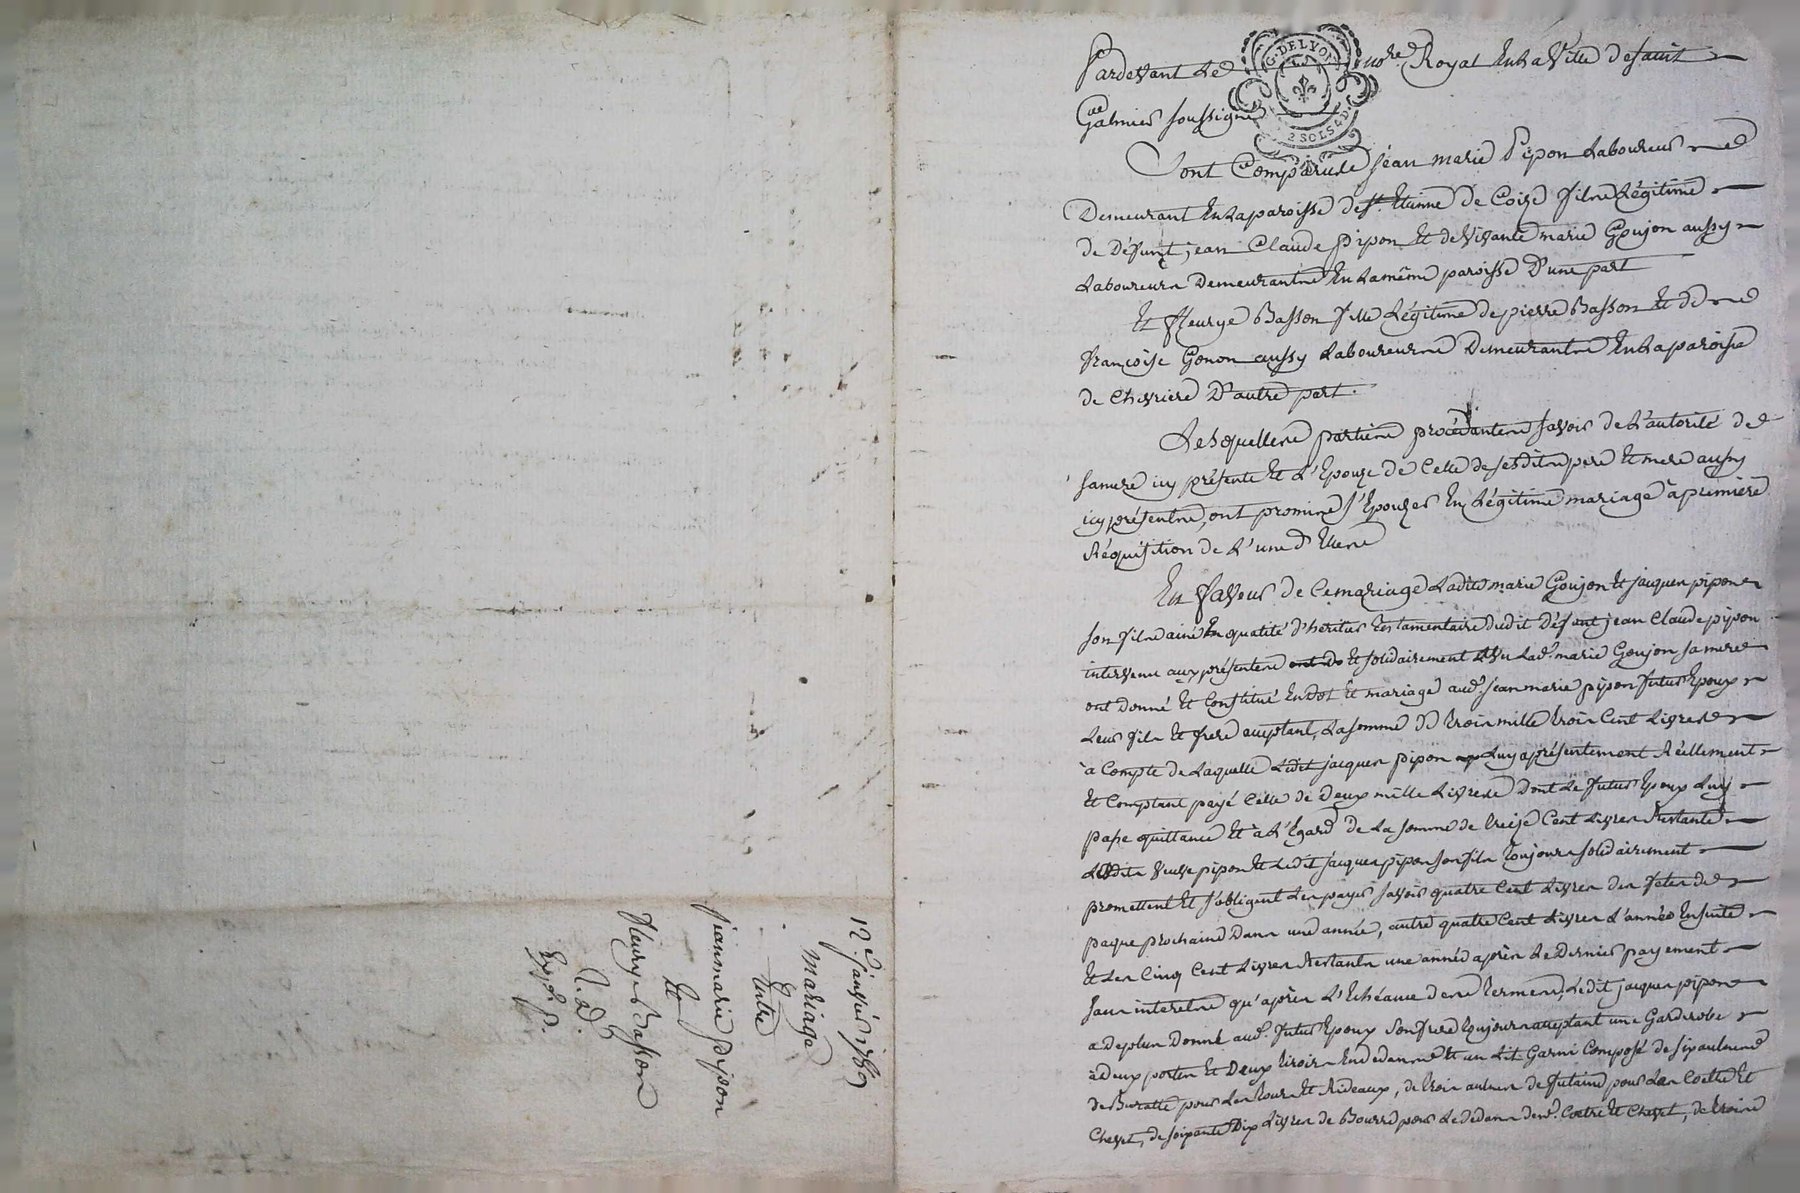 12 janvier 1789
mariage
Entre
jean marie pipon
Et
fleurye Basson
Exp.
G. DE LYON
2 SOLS 4 D.
Pardevant Le nore. Royal En La Ville de saint
Galmier soussigné
Sont Comparus jean marie Pipon Laboureur
Demeurant En La paroisse de st. Etienne de Coize fils Légitime
de Défunt jean Claude pipon Et de Vivante marie Goujon aussy
Laboureurs Demeurants En La même paroisse D'une part
Et fleurye Basson fille Légitime de pierre Basson Et de
françoise Gonon aussy Laboureurs Demeurants En La paroisse
de Chevriere D'autre part.
Lesquelles parties procédantes savoir de L'autorité de
sa mere icy présente Et L'Epouze de Celle de sesdits pere Et mere aussy
icy présents, ont promis s'Epouzer En Légitime mariage à premiere
Réquisition de L'une d'Elles
En faveur de Ce mariage Ladite marie Goujon Et jacques pipon
son fils ainé En qualité d'heritier testamentaire dudit Défunt jean Claude pipon
intervenu aux présentes Et solidairement avec Lad. marie Goujon sa mere
ont donné Et Constitué En dot Et mariage aud. jean marie pipon futur Epoux
Leur fils Et frere acceptant, La somme de trois mille trois Cent Livres
à Compte de Laquelle Ledit jacques pipon Luy a présentement Réellement
Et Comptant payé Celle de Deux mille Livres Dont Le futur Epoux Luy
passe quittance Et à L'Egard de La somme de treize Cent Livres Restante
Ladite veuve pipon Et Ledit jacques pipon son fils toujours solidairement
promettent Et s'obligent Les payer savoir quatre Cent Livres Des fetes de
paque prochaine Dans une année, autre quatre Cent Livres L'année Ensuite
Et Les Cinq Cent Livres Restants une année après Le Dernier payement
sans interets qu'après L'Echéance des termes, Ledit jacques pipon
a De plus Donné aud. futur Epoux son frere toujours acceptant une Garderobe
à Deux portes Et Deux tiroirs En dedans Et un Lit Garni Composé de six aulnes
de Buratte pour Les tours Et Rideaux, de trois aulnes de futaine pour Les Coetre Et
Chevet, de soixante Dix Livres de Bourre pour Le dedans desd. Coetre Et Chevet, de trois